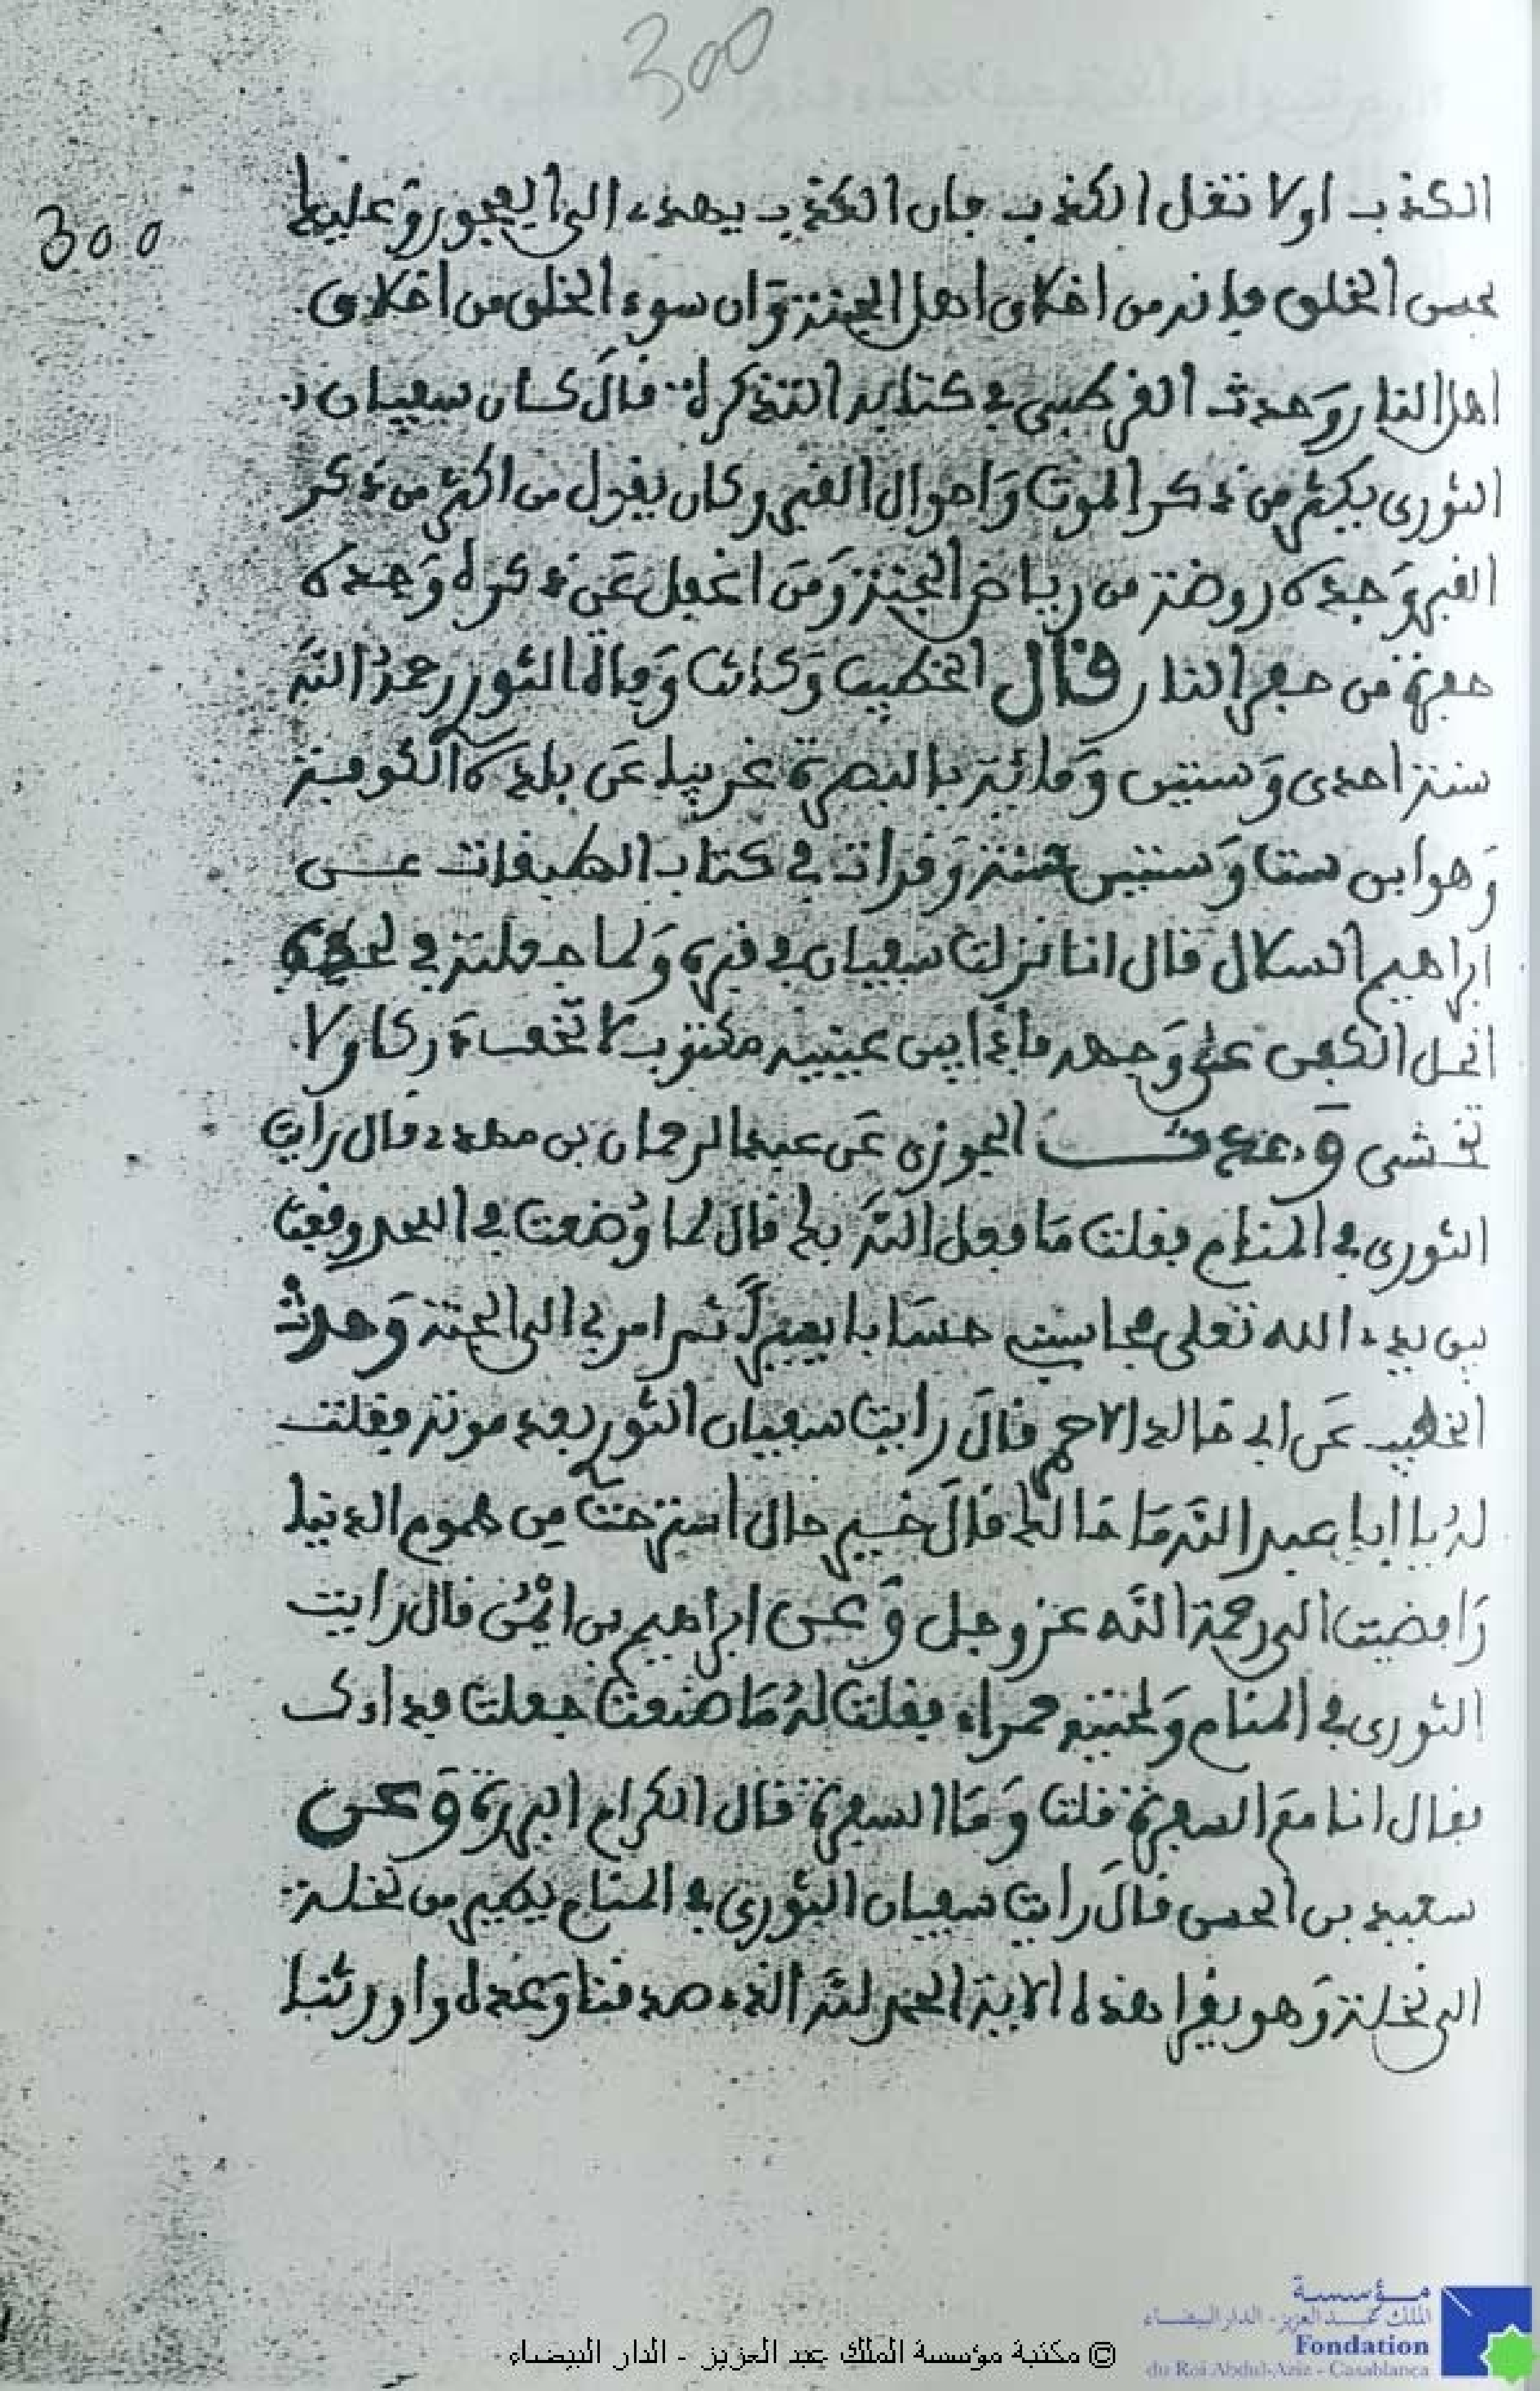 300
300
الكذب اولا تقل الكذب فان الكذب يهدي الى الفجور وعليك
بحسن الخلق فانه من اخلاق اهل الجنة وان سوء الخلق من اخلاق
اهل النار وحدث القرطبي في كتابه التذكرة قال كان سفيان
الثوري يكثر من ذكر الموت واحوال القبر وكان يقول من اكثر من ذكر
القبر وجده روضة من رياض الجنة ومن اغفل عن ذكره وجده
حفرة من حفر النار قال الخطيب وكانت وفاة الثوري رحمه الله
سنة احدى وستين ومائة بالبصرة غريبا عن بلده الكوفة
وهو ابن ستا وستين سنة وقرات في كتاب الطبقات عن
ابراهيم السكال قال انا نزلت سفيان في قبره ولما جعلته في لحده
انحل الكفن على وجهه فاذا بين عينيه مكتوب لا تخف دركا ولا
تخشى وحدث الجوزي عن عبد الرحمان بن مهدي قال رايت
الثوري في المنام فقلت ما فعل الله بك قال لما وضعت في اللحد وقفت
بين يدي الله تعلى فحاسبني حسابا يسيرا ثم امر بي الى الجنة وحدث
الخطيب عن ابي خالد الاحمر قال رايت سفيان الثوري بعد موته فقلت
له يا ابا عبد الله ما حالك قال خير حال استرحت من هموم الدنيا
وافضيت الى رحمة الله عز وجل وعن ابراهيم بن اعين قال رايت
الثوري في المنام ولحيته حمراء فقلت له ما صنعت جعلت فداوك
فقال انا مع السفرة قلت وما السفرة قال الكرام البررة وعن
سعيد بن الحسن قال رايت سفيان الثوري في المنام يطير من نخلة
الى نخلة وهو يقرا هذه الاية الحمد لله الذي صدقنا وعده واورثنا
© مكتبة مؤسسة الملك عبد العزيز - الدار البيضاء
مؤسسة
الملك عبد العزيز - الدار البيضاء
Fondation
du Roi Abdul-Aziz - Casablanca